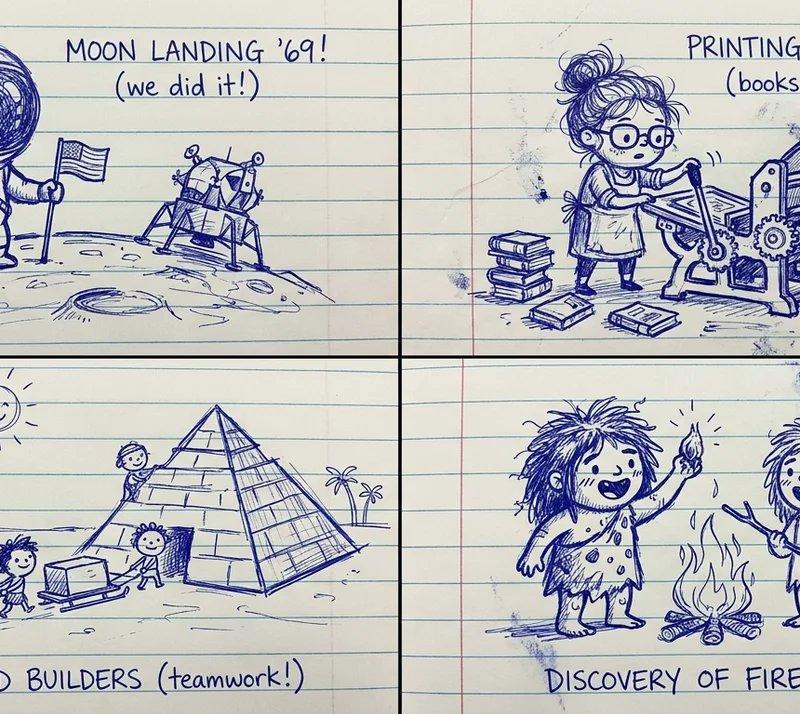 MOON LANDING '69!
(we did it!)
PRINTING
(books
D BUILDERS (teamwork!)
DISCOVERY OF FIRE